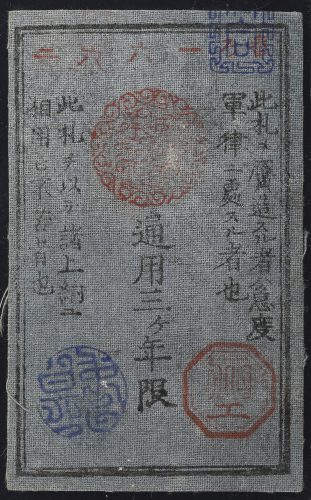 一八六二
此札ヲ贋造スル者ハ急度
軍律ニ處スル者也
通用三ケ年限
此札ヲ以テ諸上納ニ
相用ヒ不苦者也